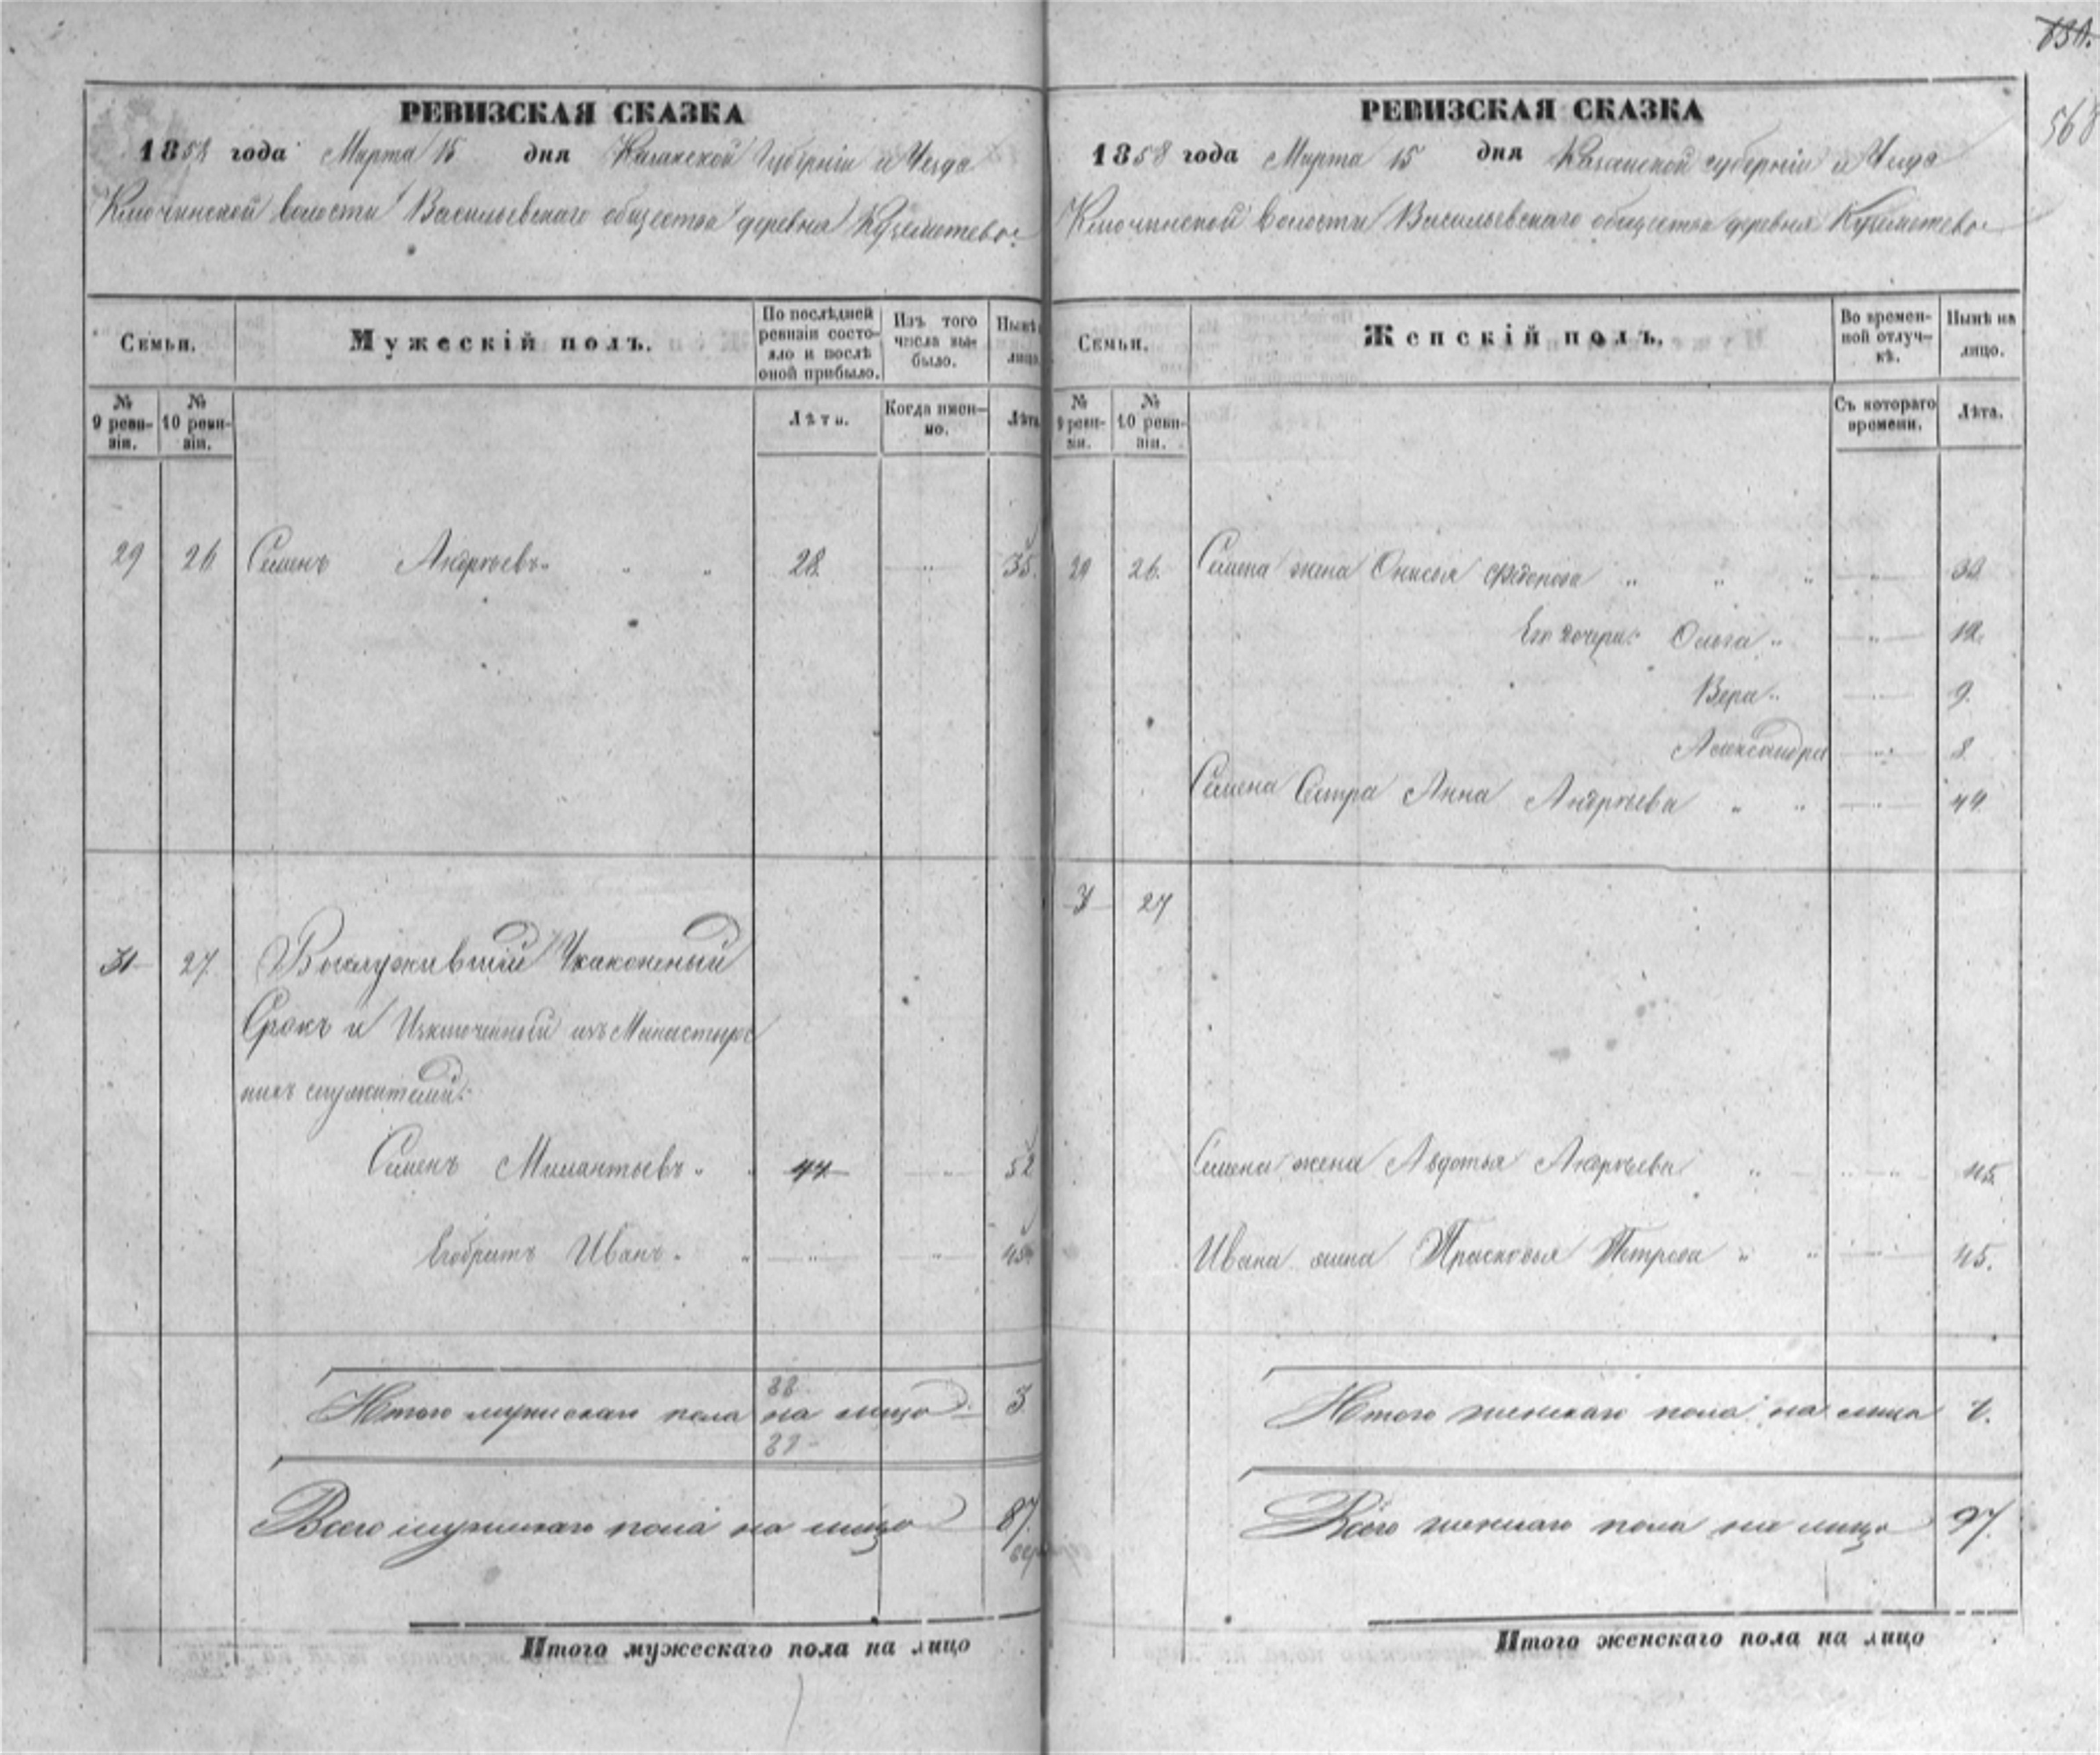 РЕВИЗСКАЯ СКАЗКА
1858 года Марта 15 дня Казанской Губерніи и Уезда
Ключинской волости Васильевскаго общества деревня
Семьи.
Мужескій полъ.
По послѣдней ревизіи состояло и послѣ оной прибыло.
Изъ того числа выбыло.
Нынѣ
лицо
№ 9 ревизіи.
№ 10 ревизіи.
Лѣта.
Когда именно.
Лѣта
29 26 Семенъ Андреевъ 28. 35.
31 27 Выслужившій Узаконеный
Срокъ и Изключенный изъ Манастырс
кихъ служителей:
Семенъ Милантьевъ 44 52
Егобратъ Иванъ 45
88
Итого мужескаго пола на лицо 3
89
Всего мужескаго пола на лицо 87.
Итого мужескаго пола на лицо
634.
568
РЕВИЗСКАЯ СКАЗКА
1858 года Марта 15 дня Казанской губерніи и Уезда
Ключинской волости Васильевскаго общества деревня
Семьи.
Женскій полъ.
Во временной отлучкѣ.
Нынѣ на лицо.
№ 9 ревизіи.
№ 10 ревизіи.
Съ котораго времени.
Лѣта.
29 26. Семена жена Онисья Федорова
Его дочери: Ольга 12.
Вера 9.
Александра 8
Семена Сестра Анна Андреева 44
31 27
Семена жена Авдотья Андреева 45.
Ивана жена Прасковья Петрова 45.
Итого женскаго пола на лицо
Всего женскаго пола на лицо 97.
Итого женскаго пола на лицо